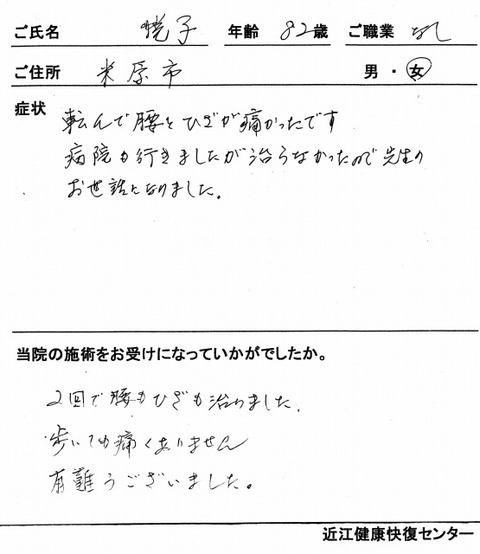 ご氏名 悦子 年齢 82歳 ご職業 なし
ご住所 米原市 男・女
症状 転んで腰とひざが痛かったです
病院も行きましたが治らなかったので先生の
お世話になりました。
当院の施術をお受けになっていかがでしたか。
2回で腰もひざも治りました。
歩いても痛くありません
有難うございました。
近江健康快復センター